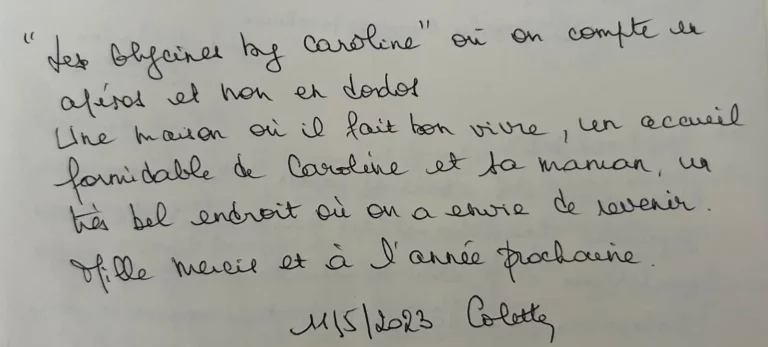 "Les Glycines by Caroline" où on compte en
apéros et non en dodos
Une maison où il fait bon vivre, un accueil
formidable de Caroline et sa maman, un
très bel endroit où on a envie de revenir.
Mille mercis et à l'année prochaine.
11/5/2023 Colette